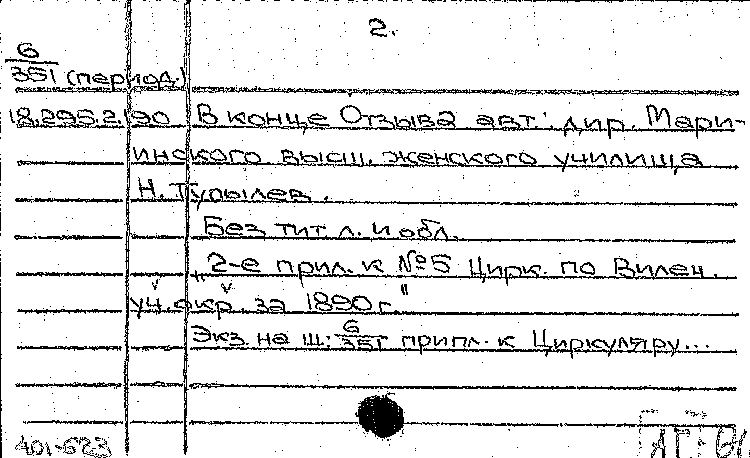 2.
6
351 (период.)
18.295.2.90 В конце Отзыва авт: дир. Мари-
инского высш. женского училища
Н. Тупылев.
Без тит. л. и обл.
"2-е прил. к №5 Цирк. по Вилен.
уч. окр. за 1890 г."
Экз. на ш: 6/351 припл. к Циркуляру...
401-623